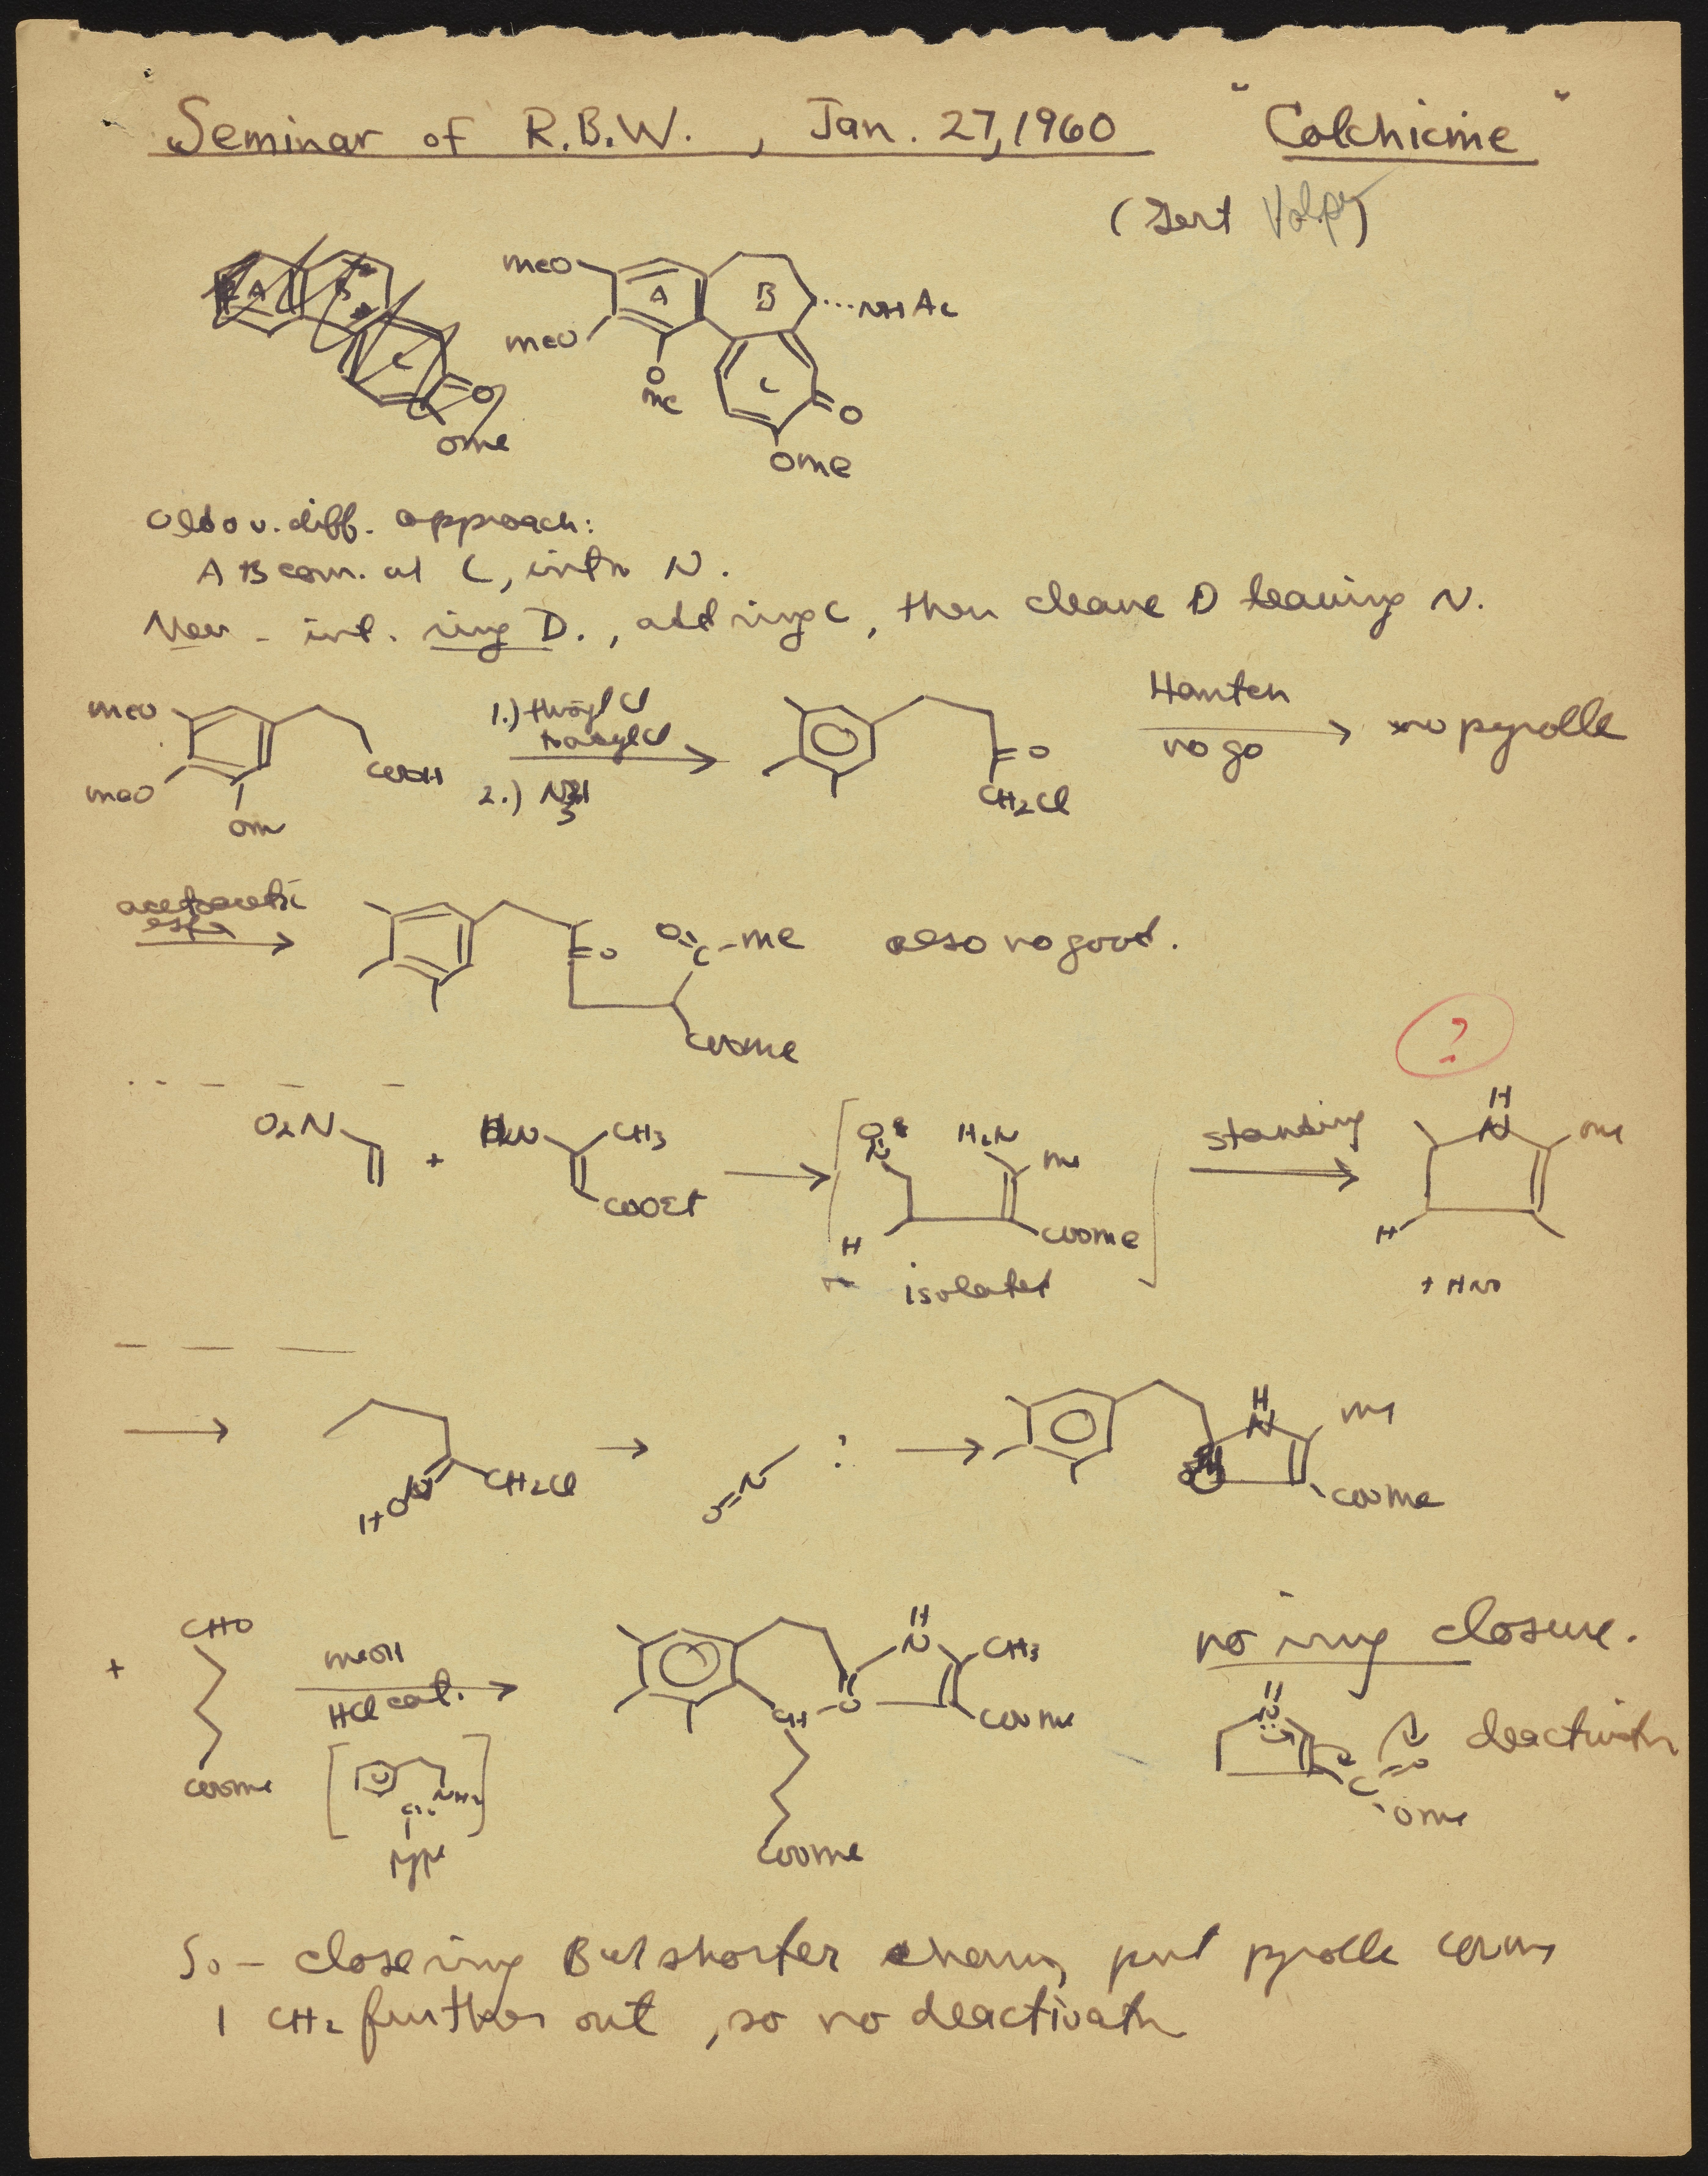 Seminar of R.B.W., Jan. 27, 1960 "Colchicine"
(Gert Volpp)
A B C O OMe
MeO A B ...NHAc
MeO O Me C O
OMe
Old v. diff. approach:
A B com. at C, intr N.
New - int. ring D., add ring C, then cleave D leaving N.
MeO MeO OM COOH
1.)
2.)
O CH2Cl
no go no pyrolle
acetoacetic ester
O O C-Me COOMe also no good.
?
O2N + H2N CH3 COOEt
H H2N Me COOMe
isolated
standing
H N Me H
+ HNO
HON CH2Cl
O=N :
H N Me COOMe
+ CHO COOMe
MeOH
HCl cat.
NH2
H N CH3 COOMe CH
COOMe
no ring closure.
C O OMe deactivatn
So - close ring B w/ shorter chain, put pyrolle
1 CH2 further out, so no deactivatn